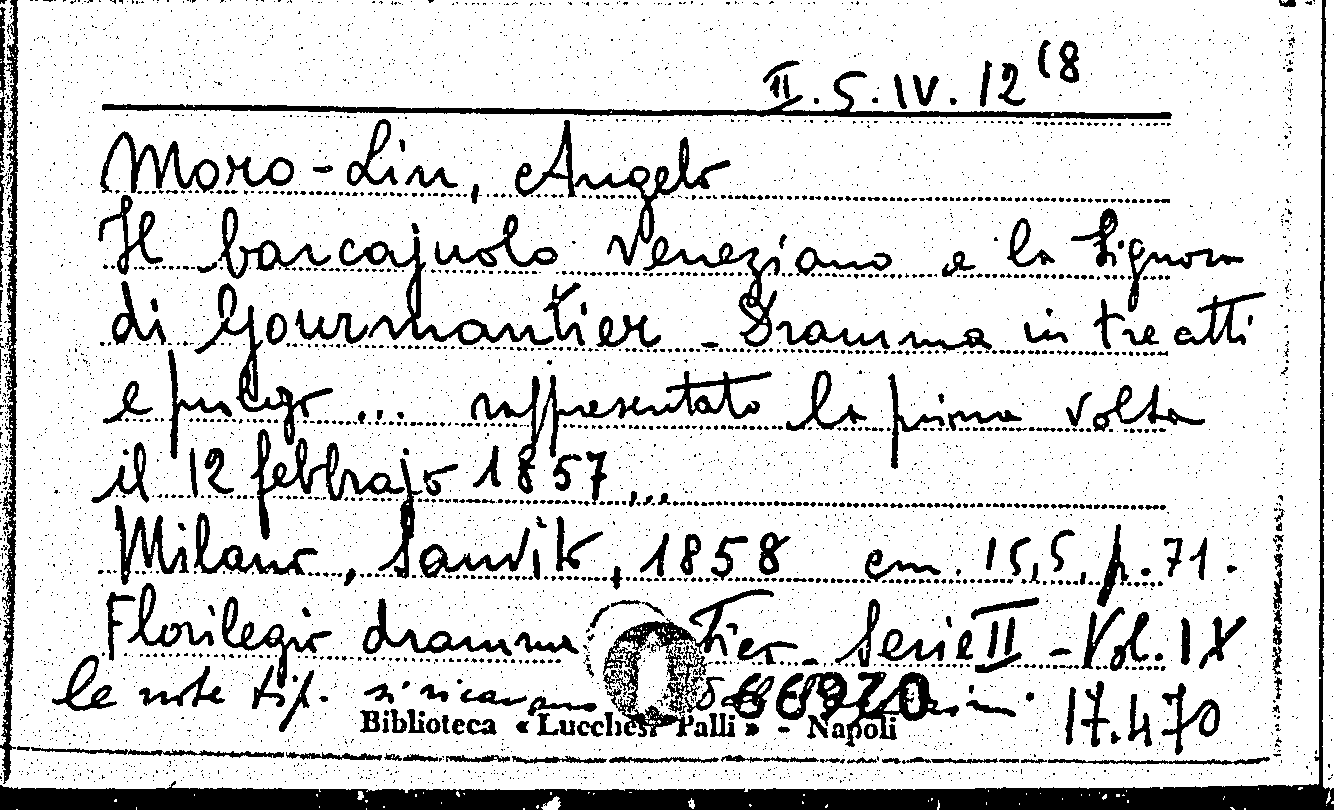 II. 5. IV. 12 (8
Moro-Lin, Angelo
Il barcajuolo veneziano e la Signora
di Gourmantier - Dramma in tre atti
e prologo ... rappresentato la prima volta
il 12 febbrajo 1857 ...
Milano, Sanvito, 1858 cm. 15,5, p. 71.
Florilegio dramma Serie II - Vol. IX
le note tip. si ricavano 66970
Biblioteca « Lucchesi Palli » - Napoli 17.470